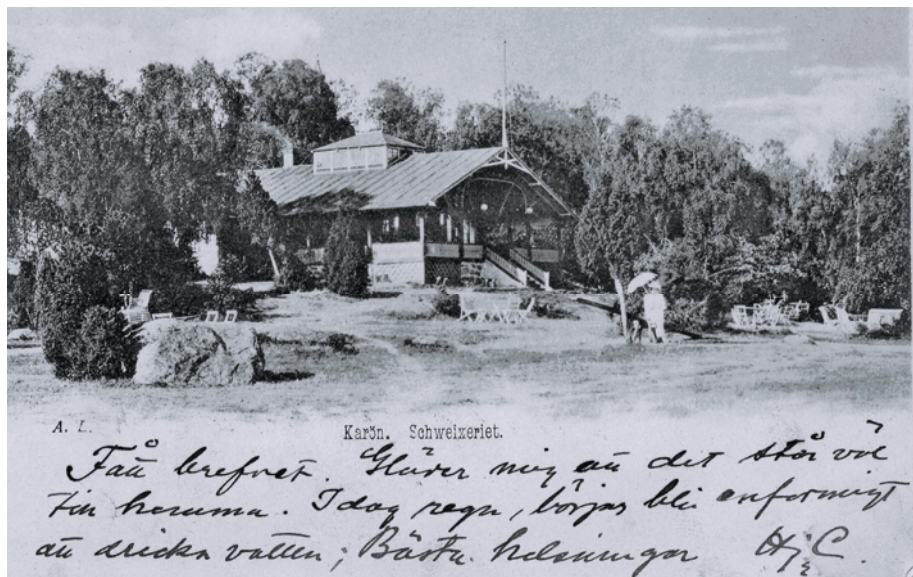 A. L.
Karön. Schweizeriet.
Fått brefvet. Gläder mig att det står väl
till hemma. I dag regn, börjar bli enformigt
att dricka vatten; Bästa helsningar Hj. C.